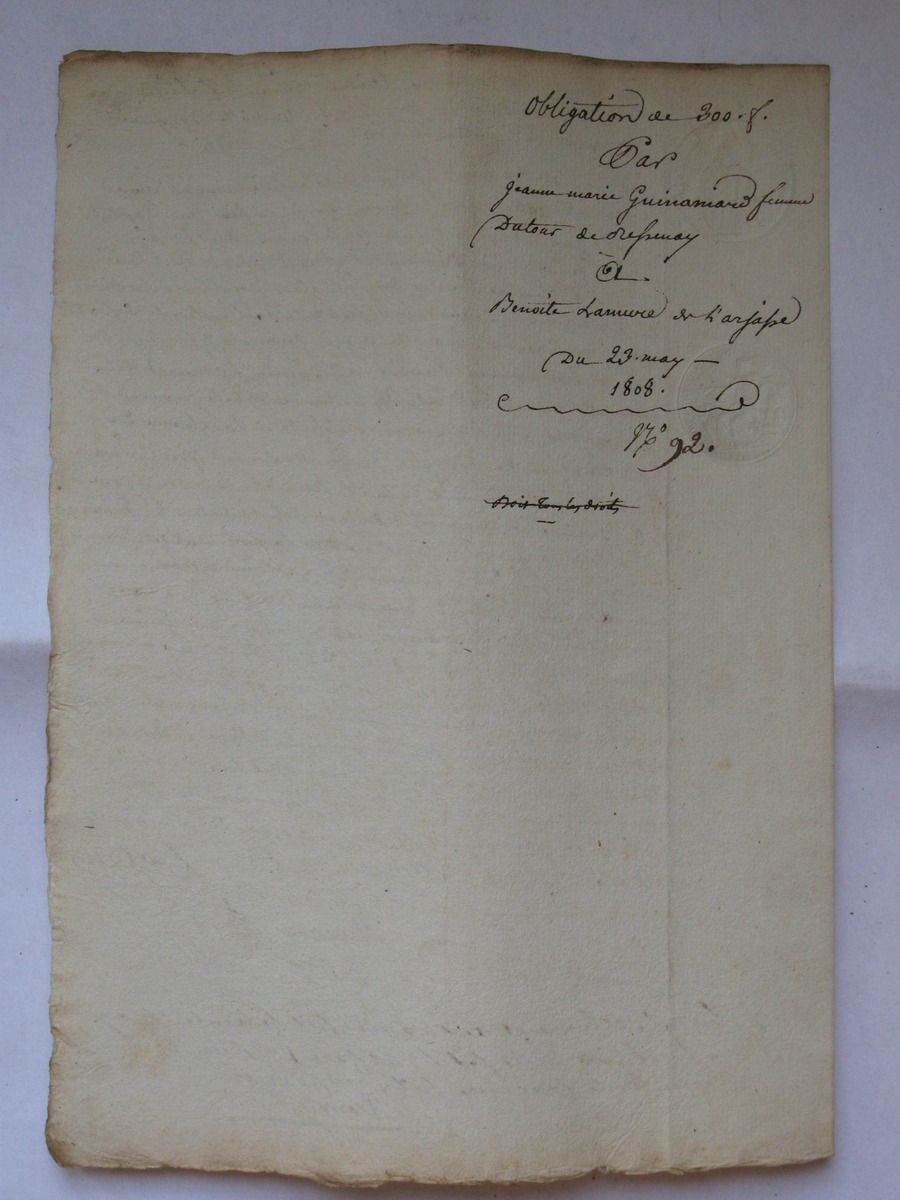 Obligation de 300. f.
Par
jeanne marie Guinamard femme
Dutour de
A
Benoite Lamure de L'arjasse
Du 23. may
1808.
N° 92.
Doit tous les droits